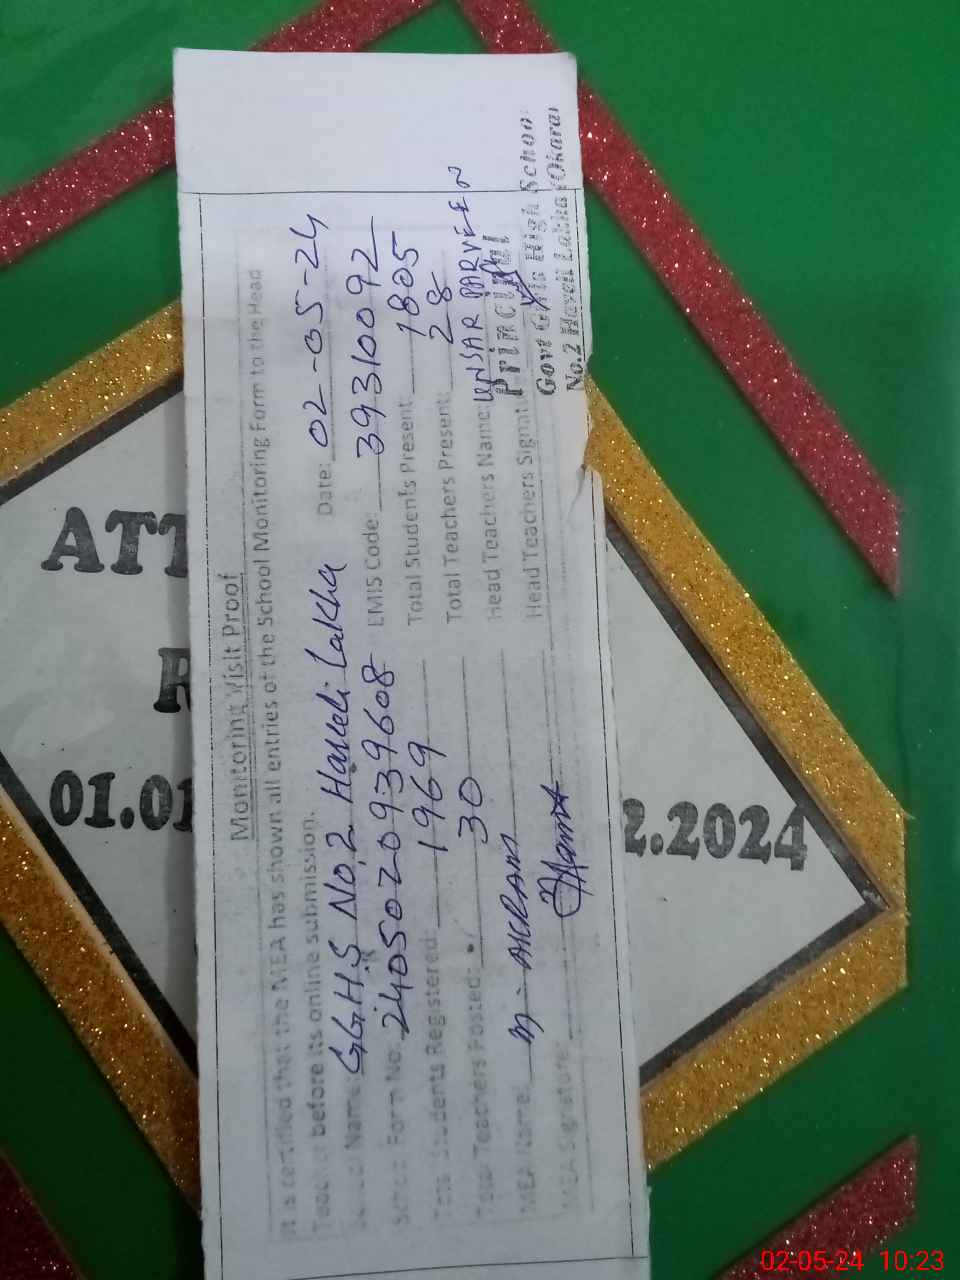 Monitoring Visit Proof
It is certified that the MEA has shown all entries of the School Monitoring Form to the Head
Teacher before its online submission.
School Name: GGHS No.2 Haveli Lakha Date: 02-05-24
School Form No: 2405020939608 EMIS Code: 39310092
Total Students Registered: 1969 Total Students Present: 1805
Total Teachers Posted: 30 Total Teachers Present: 28
MEA Name: M. AKRAM Head Teachers Name: UNSAR PARVEEN
MEA Signature: Head Teachers Signatu
Principal
Govt Girls High School
No.2 Haveli Lakha (Okara)
ATT
R
01.01
2.2024
02-05-24 10:23